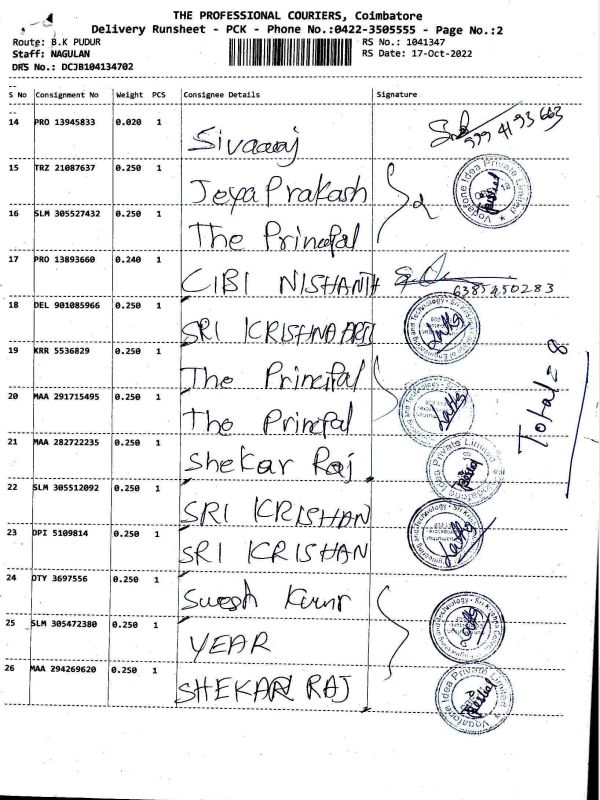 THE PROFESSIONAL COURIERS, Coimbatore
Delivery Runsheet - PCK - Phone No.:0422-3505555 - Page No.:2
Route: B.K PUDUR
RS No.: 1041347
Staff: NAGULAN
RS Date: 17-Oct-2022
DRS No.: DCJB104134702
S No Consignment No Weight PCS Consignee Details Signature
14 PRO 13945833 0.020 1
Sivaaraj
15 TRZ 21087637 0.250 1
Jeya Prakash
16 SLM 305527432 0.250 1
The Principal
17 PRO 13893660 0.240 1
CIBI NISHANTH
6385450283
18 DEL 901085966 0.250 1
SRI KRISHNA ARTS
19 KRR 5536829 0.250 1
The Principal
Total = 8
20 MAA 291715495 0.250 1
The Principal
21 MAA 282722235 0.250 1
Shekar Raj
22 SLM 305512092 0.250 1
SRI KRISHAN
23 DPI 5109814 0.250 1
SRI KRISHAN
24 OTY 3697556 0.250 1
Suresh Kumr
25 SLM 305472380 0.250 1
YEAR
26 MAA 294269620 0.250 1
SHEKAR RAJ
Vodafone Idea Private Limited